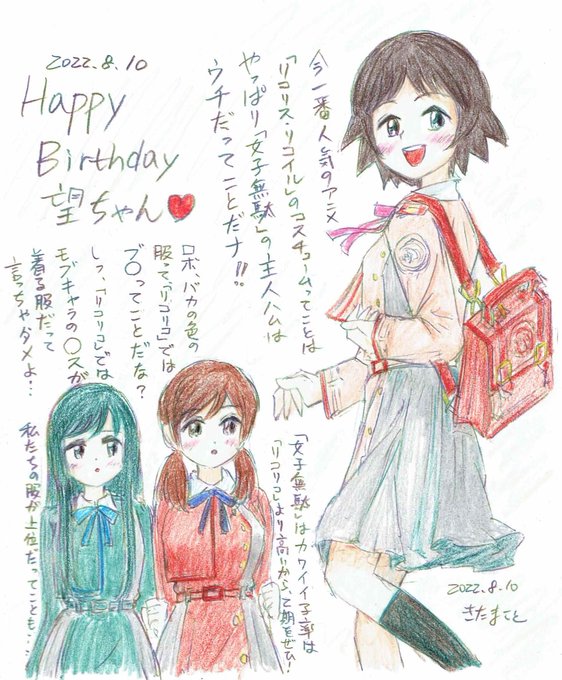 2022.8.10
Happy
Birthday
望ちゃん♥
今一番人気のアニメ
「リコリス・リコイル」のコスチュームってことは
やっぱり「女子無駄」の主人公は
ウチだってことだナ!!
ロボ、バカの色の
服って、「リコリコ」では
ブ〇ってことだな?
しっ、「リコリコ」では
モブキャラの〇スが
着る服だって
言っちゃダメよ…
私たちの服が上位だってことも…
「女子無駄」はカワイイ子率は
「リコリコ」より高いから、2期をぜひ!
2022.8.10
きたまてと